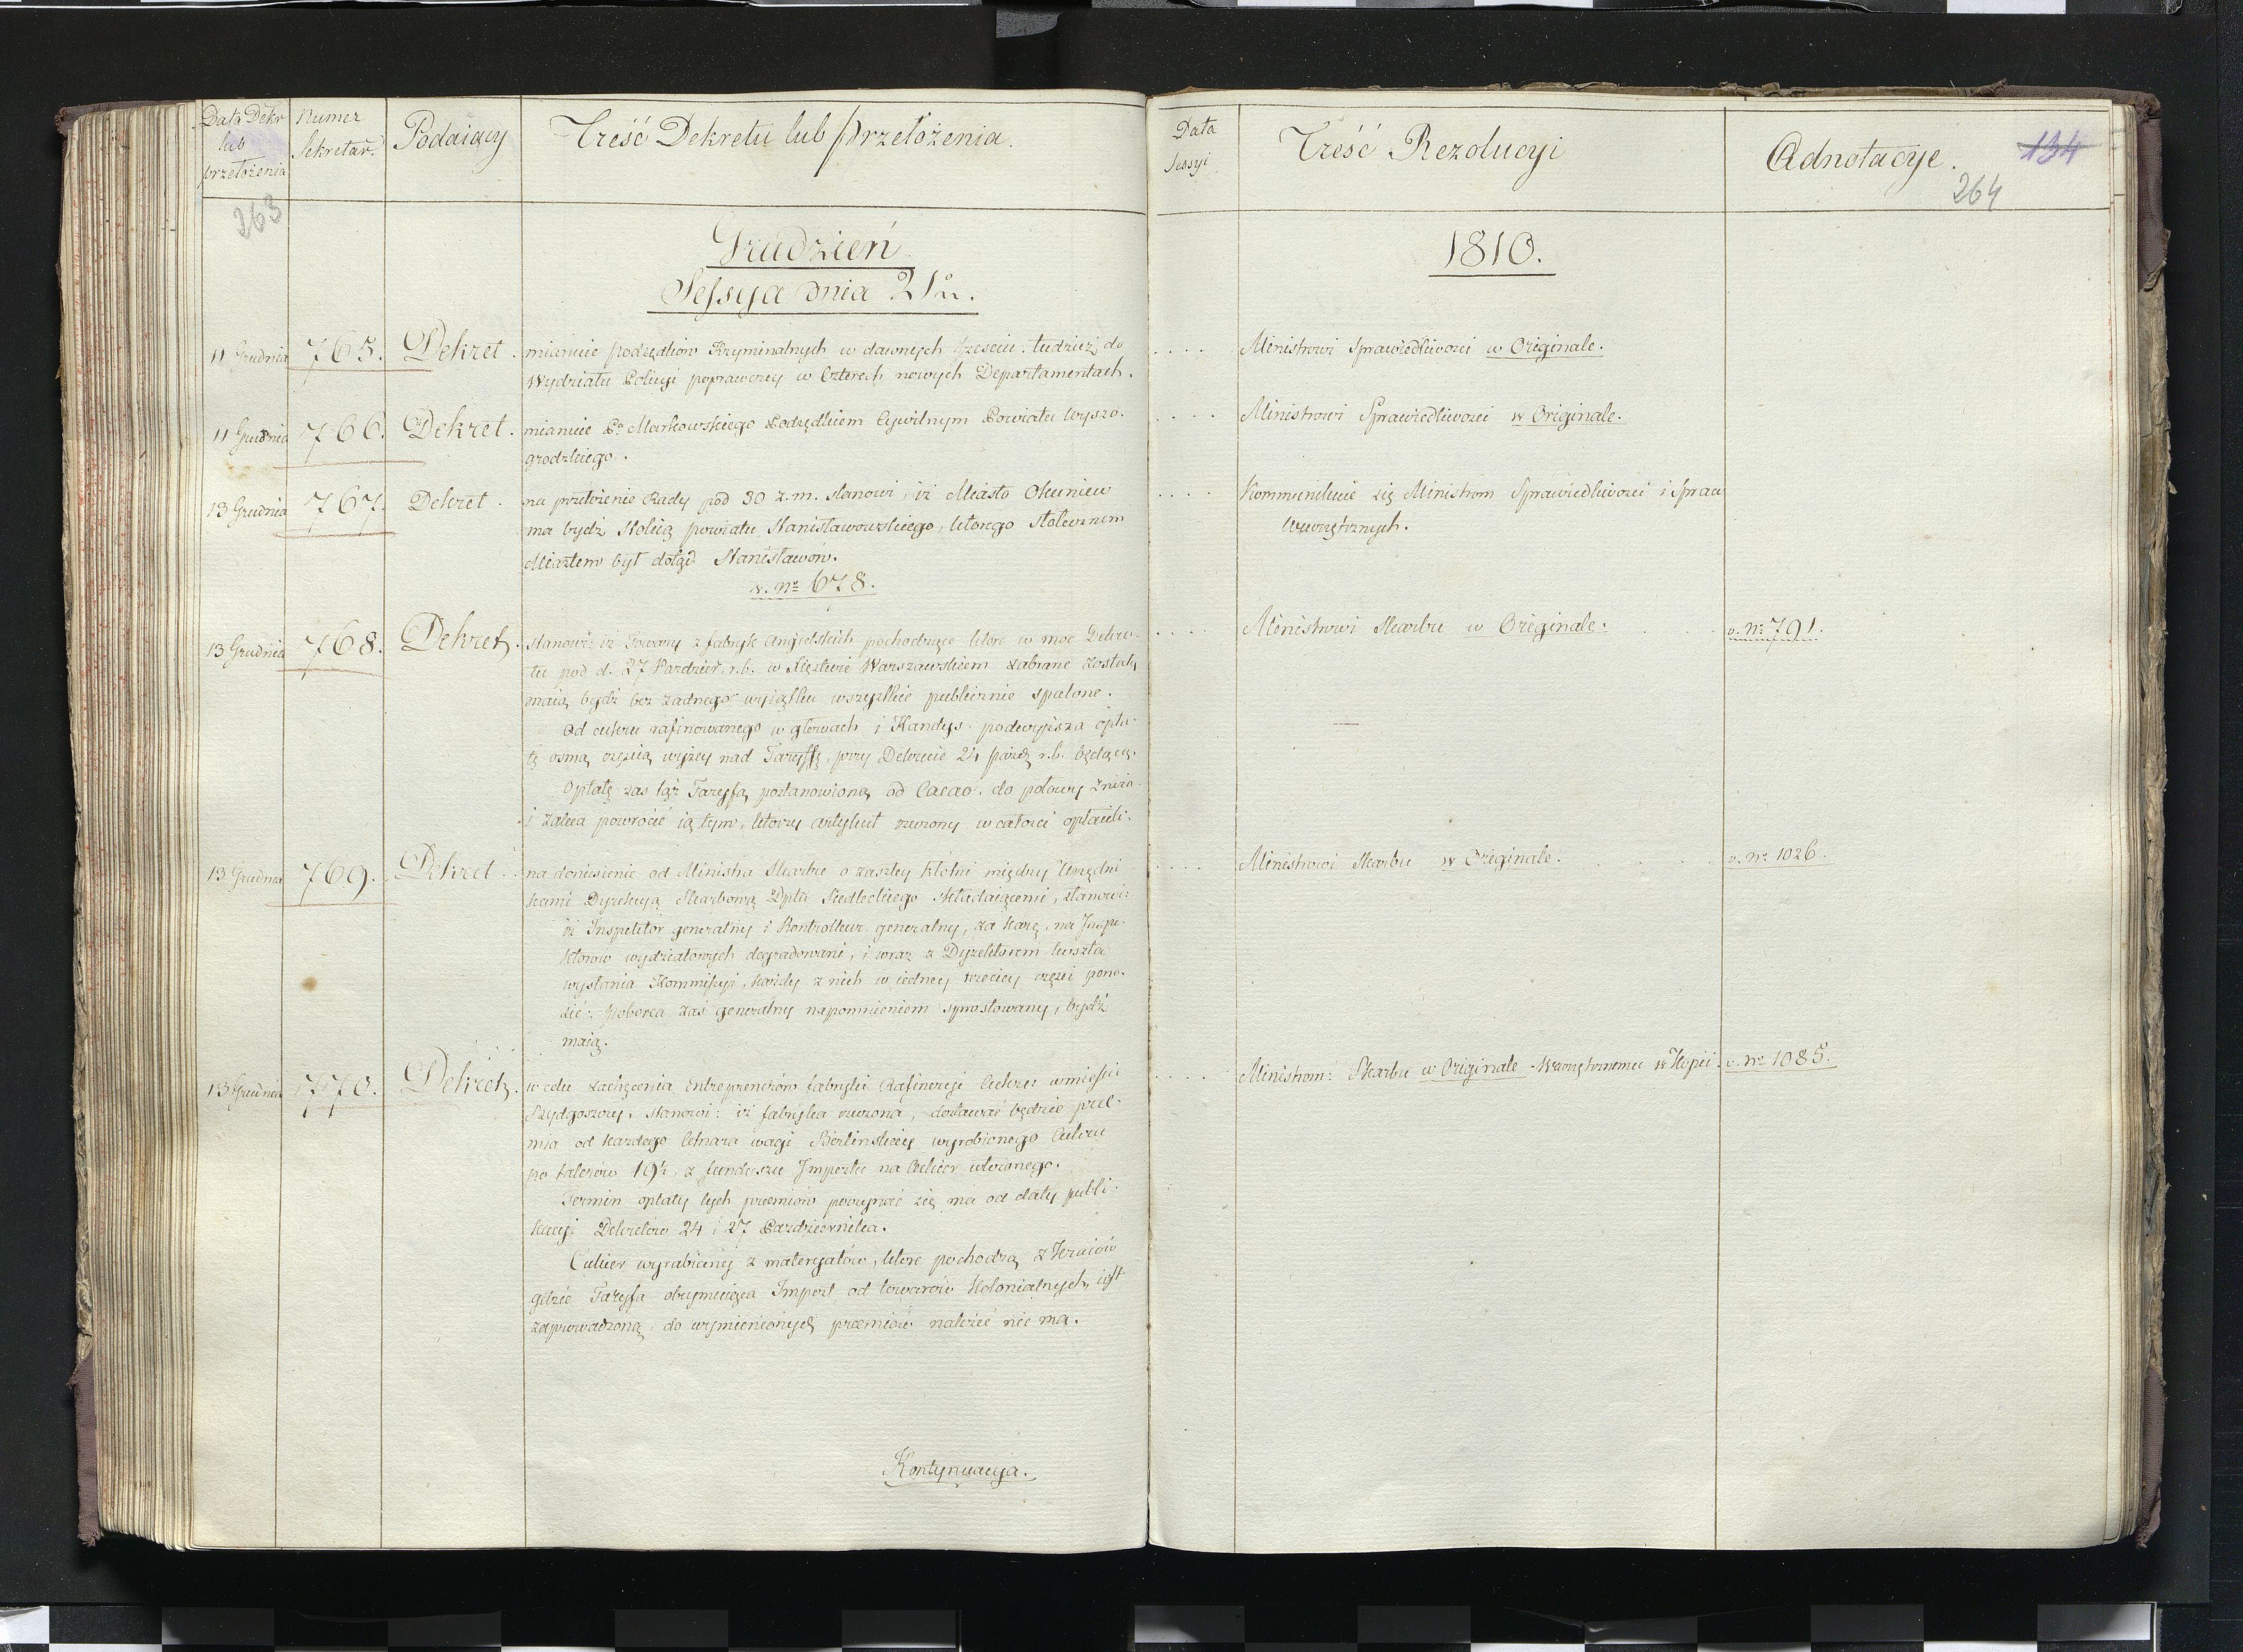 Data Dekr
lub
przełożenia
Numer
Sekretar.
Podaiący
Treść Dekretu lub przełożenia.
Data
Sessyi
Treść Rezolucyi
Adnotacye.
134
263
264
Grudzień
1810.
Sessya dnia 21o.
11 Grudnia 765. Dekret. mianuie podsędków Kryminalnych w dawnych sześciu, tudzież do
Wydziału Policyi poprawczey w Czterech nowych Departamentach.
.... Ministrowi Sprawiedliwości w Originale.
11 Grudnia 766. Dekret. mianuie Po Markowskiego Podsędkiem Cywilnym Powiatu Wyszo-
grodzkiego.
.... Ministrowi Sprawiedliwości w Originale.
13 Grudnia 767. Dekret. na przełożenie Rady pod 30 z. m. stanowi, iż Miasto Okuniew
ma bydź stolicą powiatu Stanisławowskiego, którego stołecznem
Miastem był dotąd Stanisławów.
v. No 678.
.... Kommunikuie się Ministrom Sprawiedliwości i Spraw
Wewnętrznych.
13 Grudnia 768. Dekret. stanowi: iż Towary z fabryk Angielskich pochodzące które w moc Dekre-
tu pod d. 27 Paździer. r. b. w Xięstwie Warszawskiem zabrane zostały
maią bydź bez żadnego wyiątku wszystkie publicznie spalone.
Od cukru rafinowanego w głowach i Kandys podwyższa opła-
tę osmą częścią wyżey nad Taryffę, przy Dekrecie 24 paźdź r. b. będącą.
Opłatę zaś tąż Taryfą postanowioną od Cacao, do połowy zniża
i zaleca powrócić ią tym, którzy artykuł rzeczony w całości opłacili.
.... Ministrowi Skarbu w Originale. v. No 791.
13 Grudnia 769. Dekret. na doniesienie od Ministra Skarbu o zaszłey kłótni między Urzędni
kami Dyrekcyą Skarbową Dptu Siedleckiego składaiącemi, stanowi:
iż Inspektor generalny i Kontrolleur generalny, za karę, na Inspe-
ktorów wydziałowych degradowani, i wraz z Dyrektorem koszta
wysłania Kommissyi, każdy z nich w iedney trzeciey części pono-
sić; Poborca zaś generalny napomnieniem sprostowany, bydź
maią.
.... Ministrowi Skarbu w Originale. v. No 1026.
13 Grudnia 770. Dekret. w celu zachęcenia Entreprenerów fabryki Rafineryi Cukru w mieście
Bydgoszczy, stanowi: iż fabryka rzeczona, dostawać będzie pree-
mia od każdego Cetnara wagi Berlińskiey wyrobionego Cukru
po talerów 19½ z funduszu Impostu na Cukier włożonego.
Termin opłaty tych preemiów poczynać się ma od daty publi-
kacyi Dekretów 24 i 27 Października.
Cukier wyrabiany z materyałów, które pochodzą z Kraiów
gdzie Taryfa obeymuiąca Impost od towarów Kolonialnych, iest
zaprowadzoną, do wymienionych preemiów należeć nie ma.
.... Ministrom: Skarbu w Originale. Wewnętrznemu w Kopii. v. No 1085.
Kontynuacya.